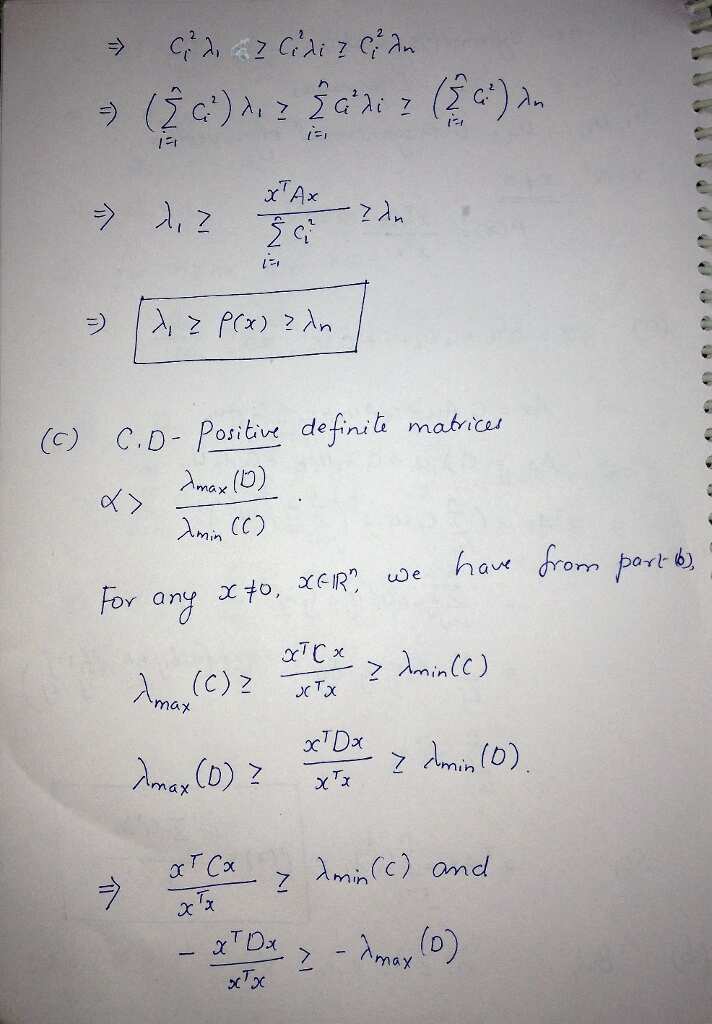 ⇒ Cᵢ²λ₁ ≥ Cᵢ²λᵢ ≥ Cᵢ²λₙ
⇒ (∑ᵢ₌₁ⁿ Cᵢ²) λ₁ ≥ ∑ᵢ₌₁ⁿ Cᵢ²λᵢ ≥ (∑ᵢ₌₁ⁿ Cᵢ²) λₙ
⇒ λ₁ ≥ xᵀAx / ∑ᵢ₌₁ⁿ Cᵢ² ≥ λₙ
⇒ λ₁ ≥ ρ(x) ≥ λₙ
(c) C.D - Positive definite matrices
α > λmax(D) / λmin(C) .
For any x ≠ 0, x∈ℝⁿ, we have from part b),
λmax(C) ≥ xᵀCx / xᵀx ≥ λmin(C)
λmax(D) ≥ xᵀDx / xᵀx ≥ λmin(D).
⇒ xᵀCx / xᵀx ≥ λmin(C) and
- xᵀDx / xᵀx ≥ - λmax(D)